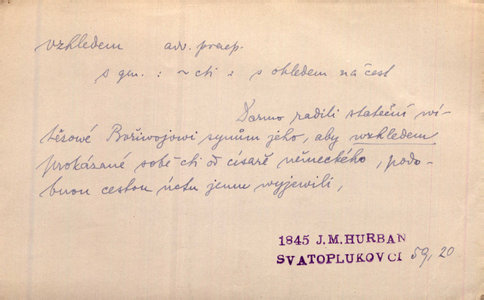 vzhledem adv. praep.
s gen.: ~ cti: s ohledem na čest
Darmo radili stateční wí-
tězowé Bořiwojowi synům jeho, aby wzhledem
prokázané sobě cti od císaře německého, podo-
bnou cestou úctu jemu wyjewili,
1845 J.M.HURBAN
SVATOPLUKOVCI 59, 20